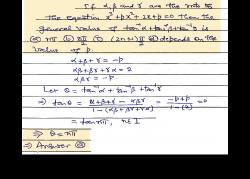 If α, β and γ are the roots to
the equation x³+px²+2x+p=0 then the
general value of tan⁻¹α+tan⁻¹β+tan⁻¹γ is
(a) nπ (b) nπ/2 (c) (2n+1)π/2 (d) depends on the
value of p.
α+β+γ = -p
αβ+βγ+γα = 2
αβγ = -p
Let θ = tan⁻¹α+tan⁻¹β+tan⁻¹γ
⇒ tanθ = (α+β+γ-αβγ)/(1-(αβ+βγ+γα)) = (-p+p)/(1-(2)) = 0
= tan nπ, n∈I
⇒ θ = nπ
⇒ Answer (a)